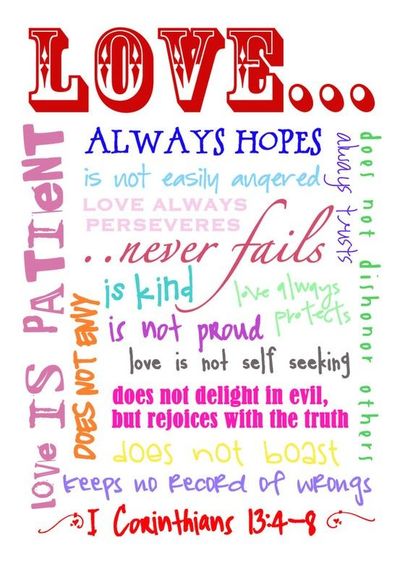 LOVE...
ALWAYS HOPES
is not easily angered
LOVE ALWAYS
PERSEVERES
..never fails
always trusts
does not dishonor others
Love IS PATIENT
DOES NOT ENVY
is kind
love always
protects
is not proud
love is not self seeking
does not delight in evil,
but rejoices with the truth
does not boast
keeps no record of wrongs
I Corinthians 13:4-8